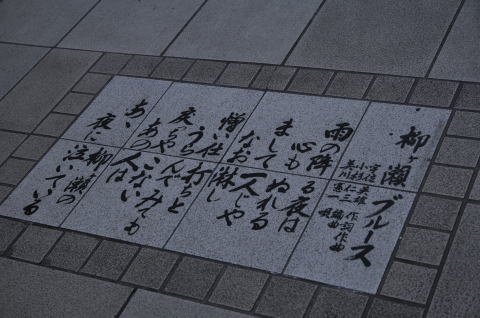 柳ヶ瀬ブルース
宇佐英雄 作詞作曲
小杉仁三 編曲
美川憲一 歌
雨の降る夜は
心もぬれる
まして一人じや
なお淋し
憎い仕打ちと
うらんでみても
戻ちやこない
あの人は
あゝ柳ヶ瀬の
夜に泣いている